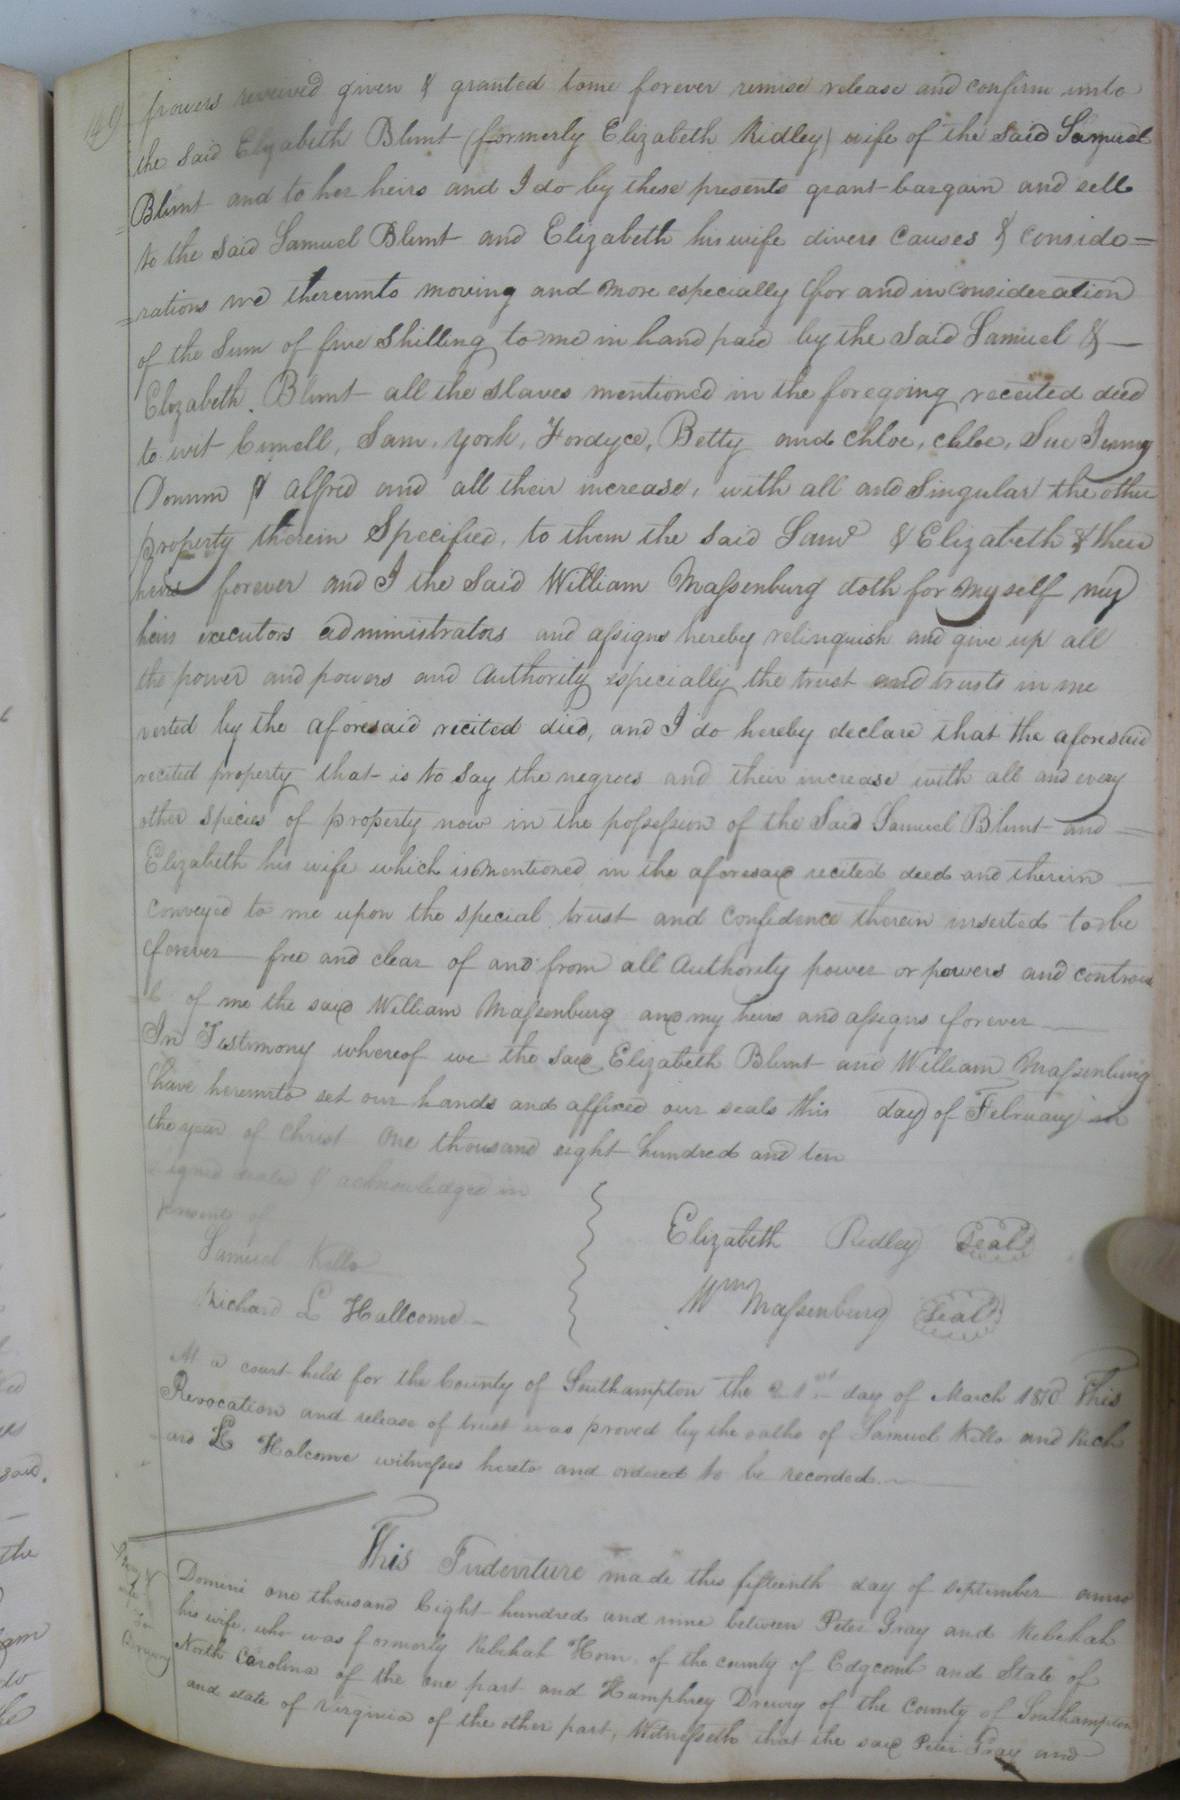 149
powers received given & granted to me forever remise release and confirm unto
the said Elizabeth Blunt (formerly Elizabeth Ridley) wife of the said Samuel
Blunt and to her heirs and I do by these presents grant bargain and sell
to the said Samuel Blunt and Elizabeth his wife divers causes & conside=
=rations me thereunto moving and more especially for and in consideration
of the Sum of five Shilling to me in hand paid by the said Samuel &
Elizabeth Blunt all the slaves mentioned in the foregoing receited deed
to wit Sam, York, Fordyce, Betty and chloe, chloe, Sue Jenny
& Alfred and all their increase, with all and Singular the other
property therein Specified, to them the said Saml & Elizabeth & their
heirs forever and I the Said William Massenburg doth for my self my
heirs executors administrators and assigns hereby relinquish and give up all
the power and powers and Authority especially the trust and trusts in me
vested by the aforesaid recited deed, and I do hereby declare that the aforesaid
recited property that is to say the negroes and their increase with all and every
other Species of property now in the possession of the Said Samuel Blunt and =
Elizabeth his wife which is mentioned in the aforesaid recited deed and therein
conveyed to me upon the special trust and confidence therein inserted to be
forever free and clear of and from all Authority power or powers and controul
of me the said William Massenburg and my heirs and assigns forever
In Testimony whereof we the said Elizabeth Blunt and William Massenburg
have hereunto set our hands and affixed our seals this day of February in
the year of Christ One thousand eight hundred and ten
Signed sealed & acknowledged in
presence of
Elizabeth Ridley Seal
Samuel Kello
Wm Massenburg Seal
Richard L Hallcome
At a court held for the County of Southampton the 21st day of March 1810 This
Revocation and release of trust was proved by the oaths of Samuel Kello and Rich
ard L Halcome witnesses hereto and ordered to be recorded
This Indenture made this fifteenth day of September anno
Gray & wife to Drewry
Domini one thousand Eight hundred and nine between Peter Gray and Rebekah
his wife, who was formerly Rebekah Horn, of the county of Edgcomb and State of
North Carolina of the one part and Humphrey Drewry of the County of Southampton
and state of Virginia of the other part, Witnesseth that the said Peter Gray and